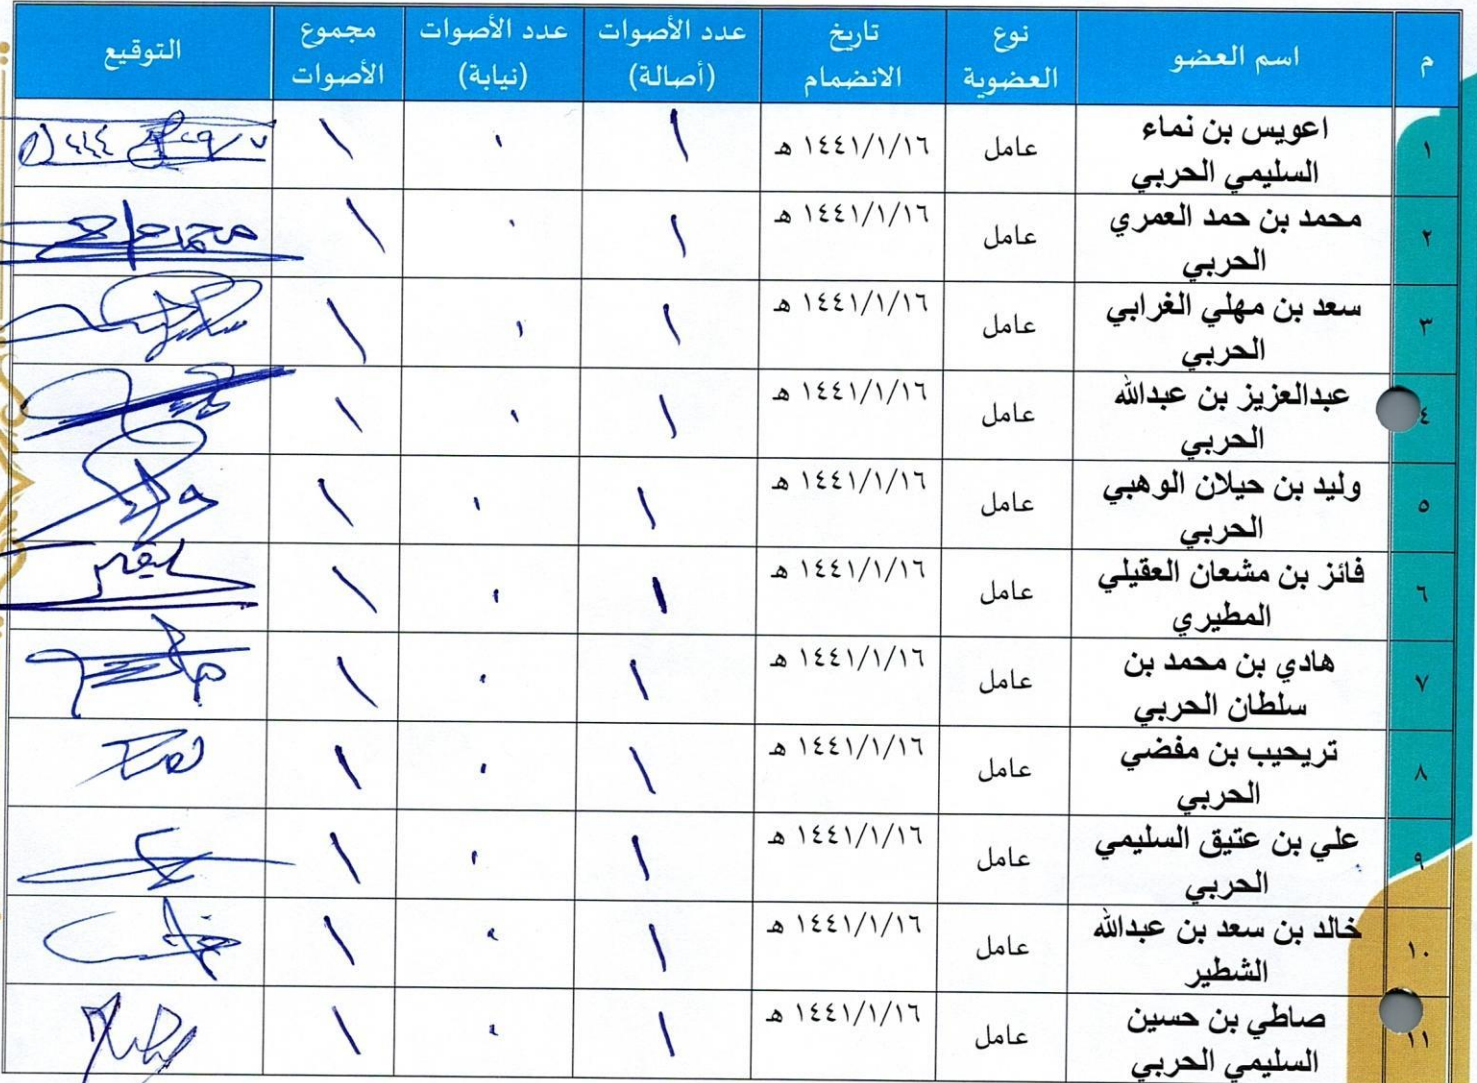 م اسم العضو نوع العضوية تاريخ الانضمام عدد الأصوات (أصالة) عدد الأصوات (نيابة) مجموع الأصوات التوقيع
١ اعويس بن نماء السليمي الحربي عامل ١٤٤١/١/١٦ هـ ١ ٠ ١
٢ محمد بن حمد العمري الحربي عامل ١٤٤١/١/١٦ هـ ١ ٠ ١
٣ سعد بن مهلي الغرابي الحربي عامل ١٤٤١/١/١٦ هـ ١ ٠ ١
٤ عبدالعزيز بن عبدالله الحربي عامل ١٤٤١/١/١٦ هـ ١ ٠ ١
٥ وليد بن حيلان الوهبي الحربي عامل ١٤٤١/١/١٦ هـ ١ ٠ ١
٦ فائز بن مشعان العقيلي المطيري عامل ١٤٤١/١/١٦ هـ ١ ٠ ١
٧ هادي بن محمد بن سلطان الحربي عامل ١٤٤١/١/١٦ هـ ١ ٠ ١
٨ تريحيب بن مفضي الحربي عامل ١٤٤١/١/١٦ هـ ١ ٠ ١
٩ علي بن عتيق السليمي الحربي عامل ١٤٤١/١/١٦ هـ ١ ٠ ١
١٠ خالد بن سعد بن عبدالله الشطير عامل ١٤٤١/١/١٦ هـ ١ ٠ ١
١١ صاطي بن حسين السليمي الحربي عامل ١٤٤١/١/١٦ هـ ١ ٠ ١